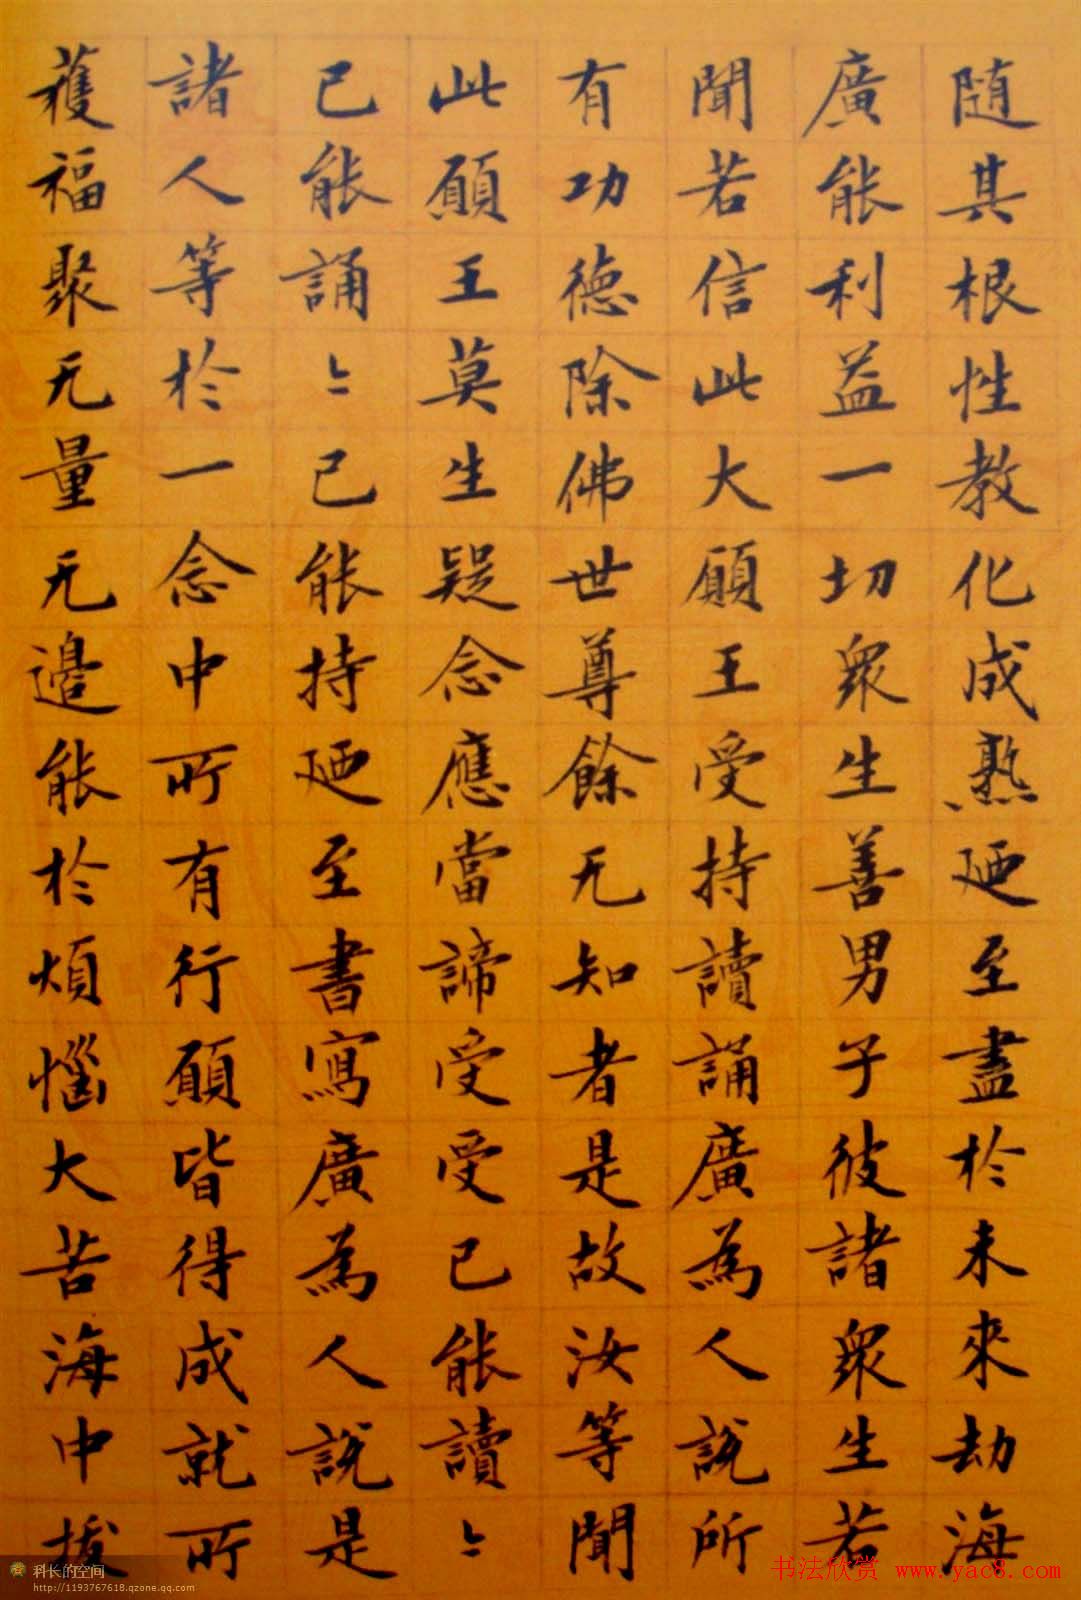 随其根性教化成熟廼至盡於未來劫海
廣能利益一切衆生善男子彼諸衆生若
聞若信此大願王受持讀誦廣為人說所
有功德除佛世尊餘无知者是故汝等聞
此願王莫生疑念應當諦受受已能讀〻
已能誦〻已能持廼至書寫廣為人說是
諸人等於一念中所有行願皆得成就所
獲福聚无量无邊能於煩惱大苦海中拔
科长的空间
http://1193767618.qzone.qq.com
书法欣赏 www.yac8.com